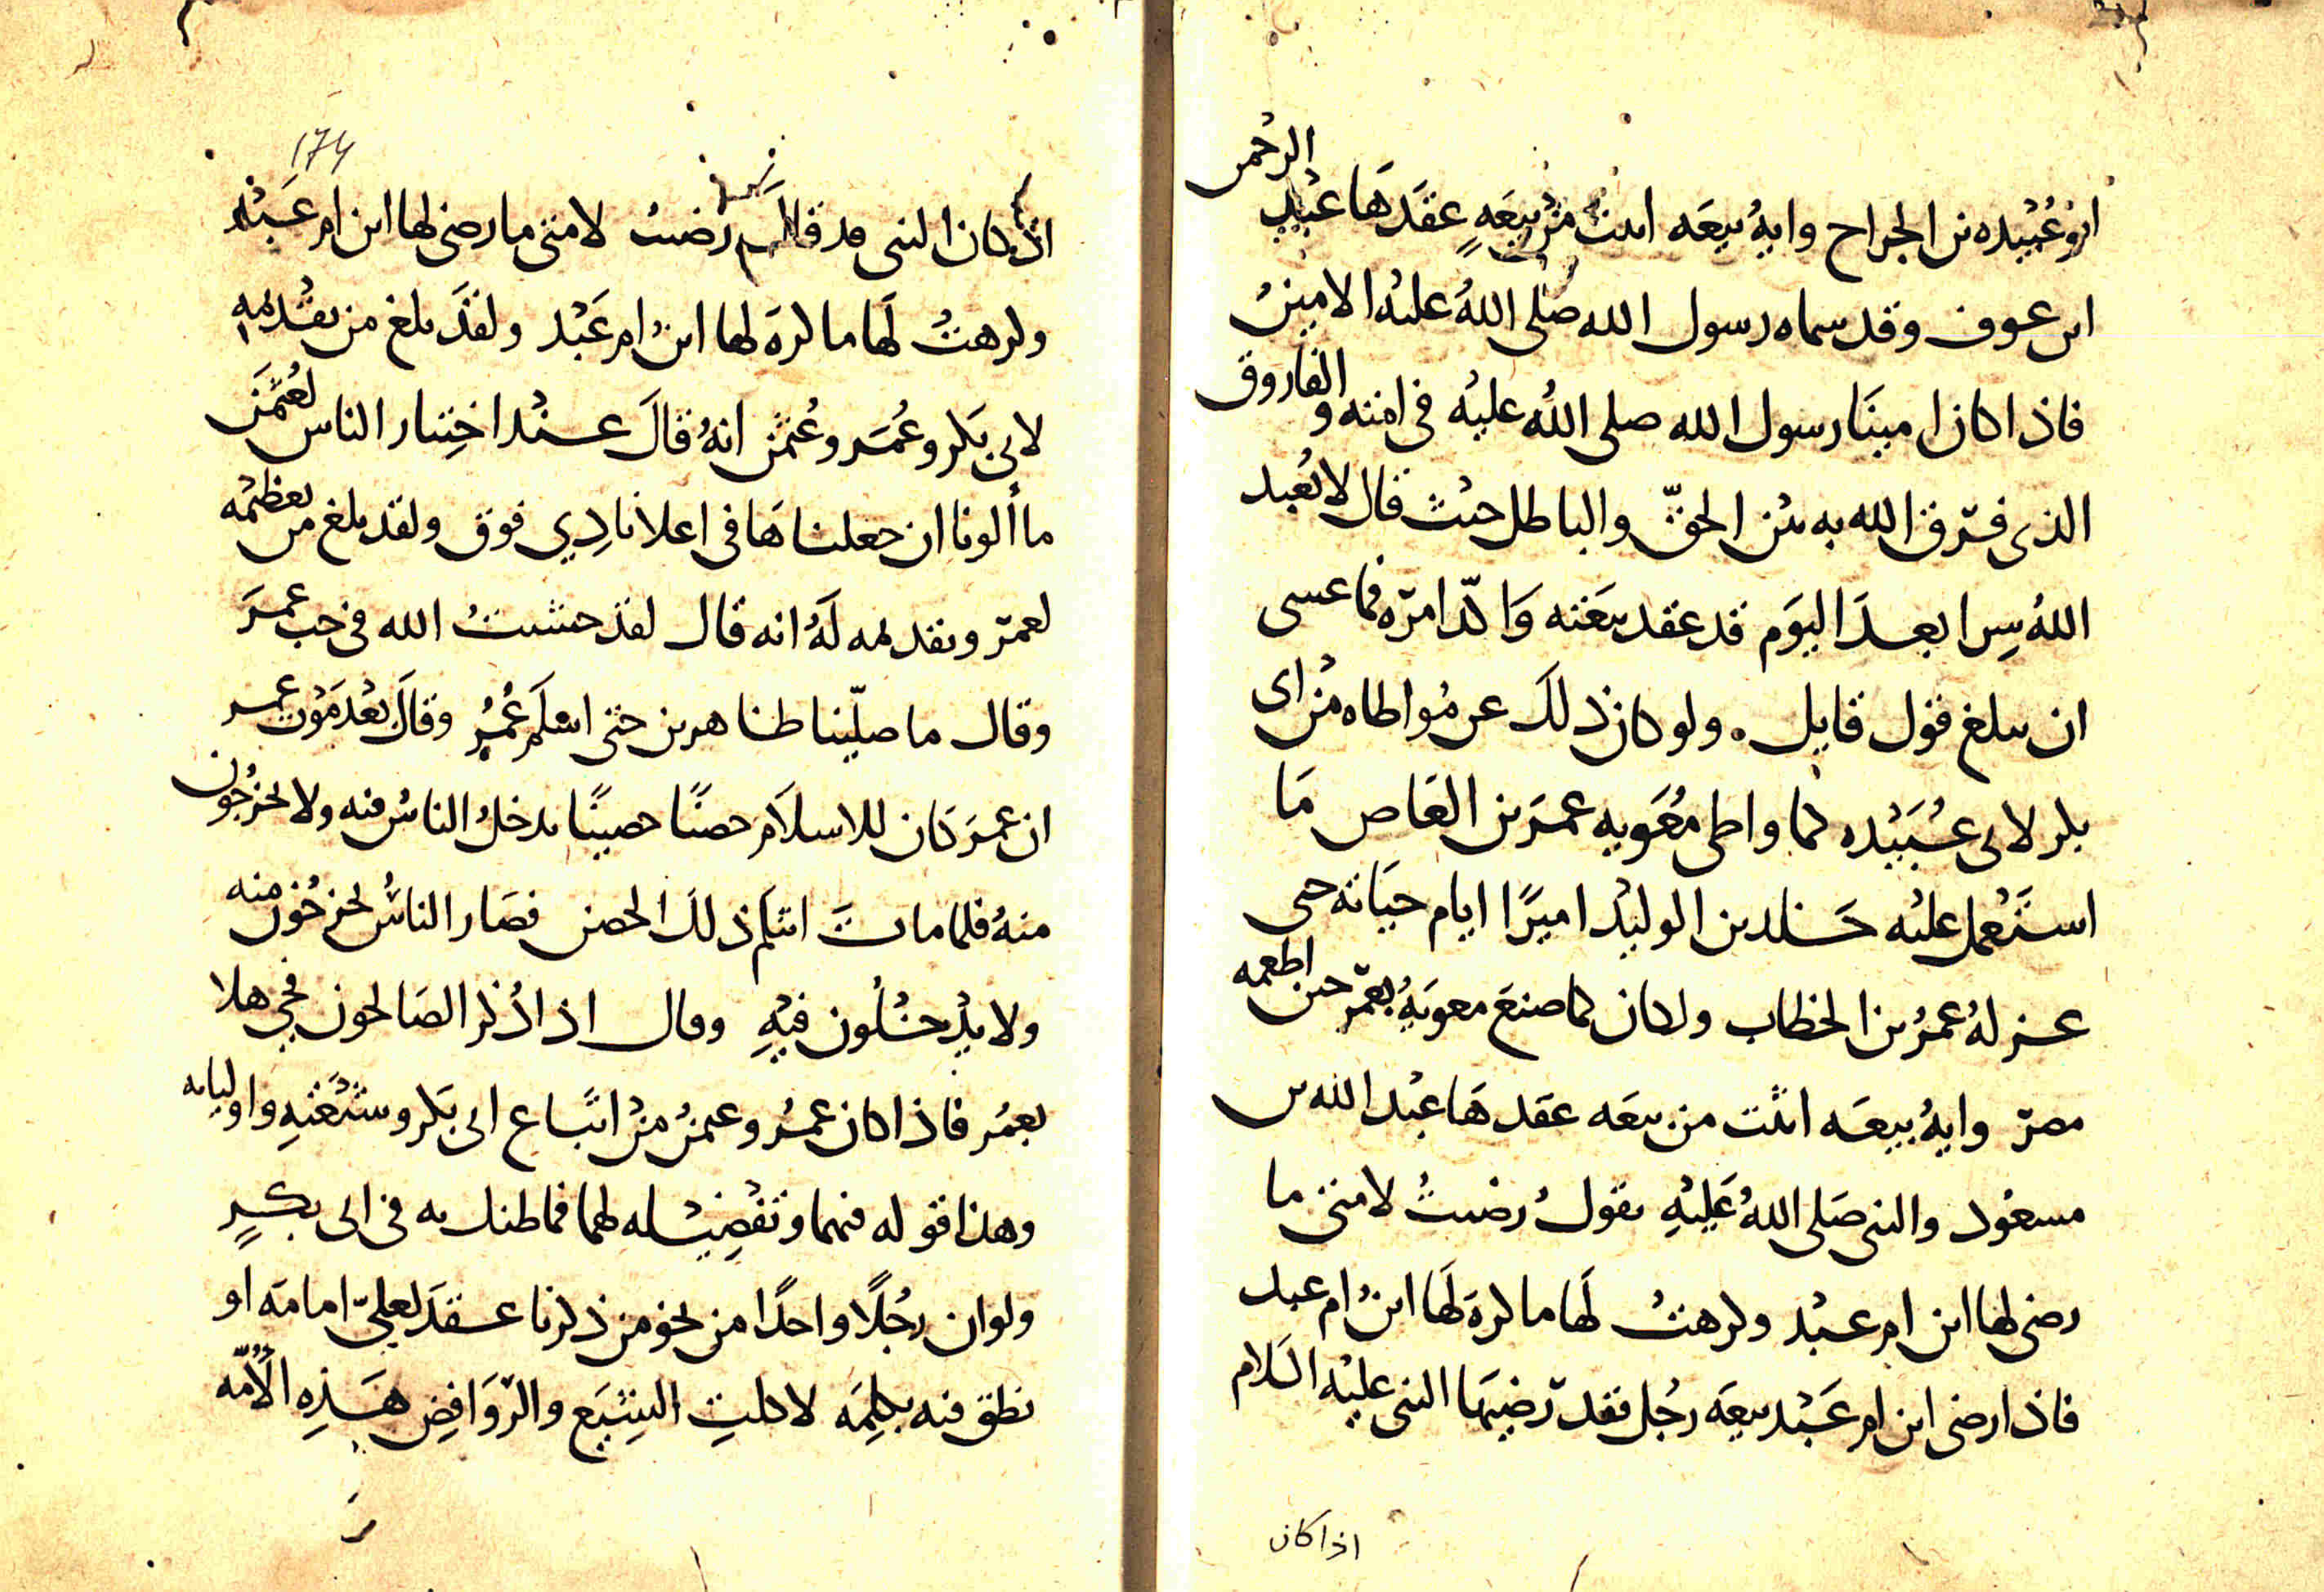 ابو عُبيده بن الجراح وايةُ بيعَه اثبت من بيعَةٍ عقدَهَا عبد الرحمن
ابن عوف وقد سماه رسول الله صلى اللهُ عليهُ الامينُ
فاذا كان امينَا رسول الله صلى اللهُ عليهُ فى امته والفاروق
الذى فرّق الله به بين الحقّ والباطل حيث قال لا نُعبد
اللهُ سِرا بعد اليوَم قد عقد بيعَته وَاكّد امرّه فما عسى
ان يبلغ قول قايل . ولو كان ذلكَ عن مُواطاه من ابى
بكر لابى عُبَيْده كما واطى مُعَويه عمرَ بن العَاص مَا
استَعْمل عليُه خلد بن الوليد اميرًا ايام حيَاته حتى
عزلهُ عمرُ بن الخطاب ولكان كما صنعَ معويَهُ بعمرّ حين اطعمه
مصرّ وايهُ بيعَه اثبت من بيعَه عقدهَا عبْد الله بن
مسعُود والنبى صَلى اللهُ عَليْهِ يقولُ رضيتُ لامتى ما
رضى لها ابن ام عبْد وكرهتُ لَها ما كرهَ لَها ابنُ ام عبد
فاذا رضى ابن ام عَبْد بيعَه رجُل فقد رّضيَها النبى عليْه السَلام
اذا كان
174
اذ كان النبى قد قال رضيتُ لامتى ما رضى لها ابن ام عَبْد
وكرهتُ لَها ما كرهَ لها ابنُ ام عَبْد ولقدَ بلغ من تقْديمه
لابى بَكر وعُمَر وعُثمن انهُ قالَ عنْد اختِيار الناس لعُثمَن
ما ألونا ان جعلناهَا فى اعلانا ذِي فوق ولقد بلغ من تعظيمْه
لعمرّ وتقديمه لَهُ انه قال لقدَ خشيتُ الله فى حب عمرَ
وقال ما صلّينا ظاهرين حتى اسْلَم عُمَرُ وقالَ بعْد مَوْت عمر
ان عمرَ كان للاسلاَم حصنًا حصينًا يدخلُ الناسُ فيه ولا يخرْجُون
منهُ فلما ماتَ انثلَم ذلكَ الحصن فصَار الناسُ يخرجُون منه
ولا يدْخلُون فيْهِ وقال اذا ذُكر الصَالحون فحى هلا
بعمُر فاذا كان عمرُ وعمنُ منْ اتبَاع ابى بَكر وشيْعَتهِ واوليايه
وهذا قوله فيهما وتفضِيْله لهما فما ظنك به فى ابى بكرٍ
ولو ان رجُلاً واحدًا من نحو من ذكرنا عقدَ لعلىّ امامَه او
نطق فيه بكلِمَه لاكلتِ الشِيَع والرّوَافِض هَذِهِ الأُمّه